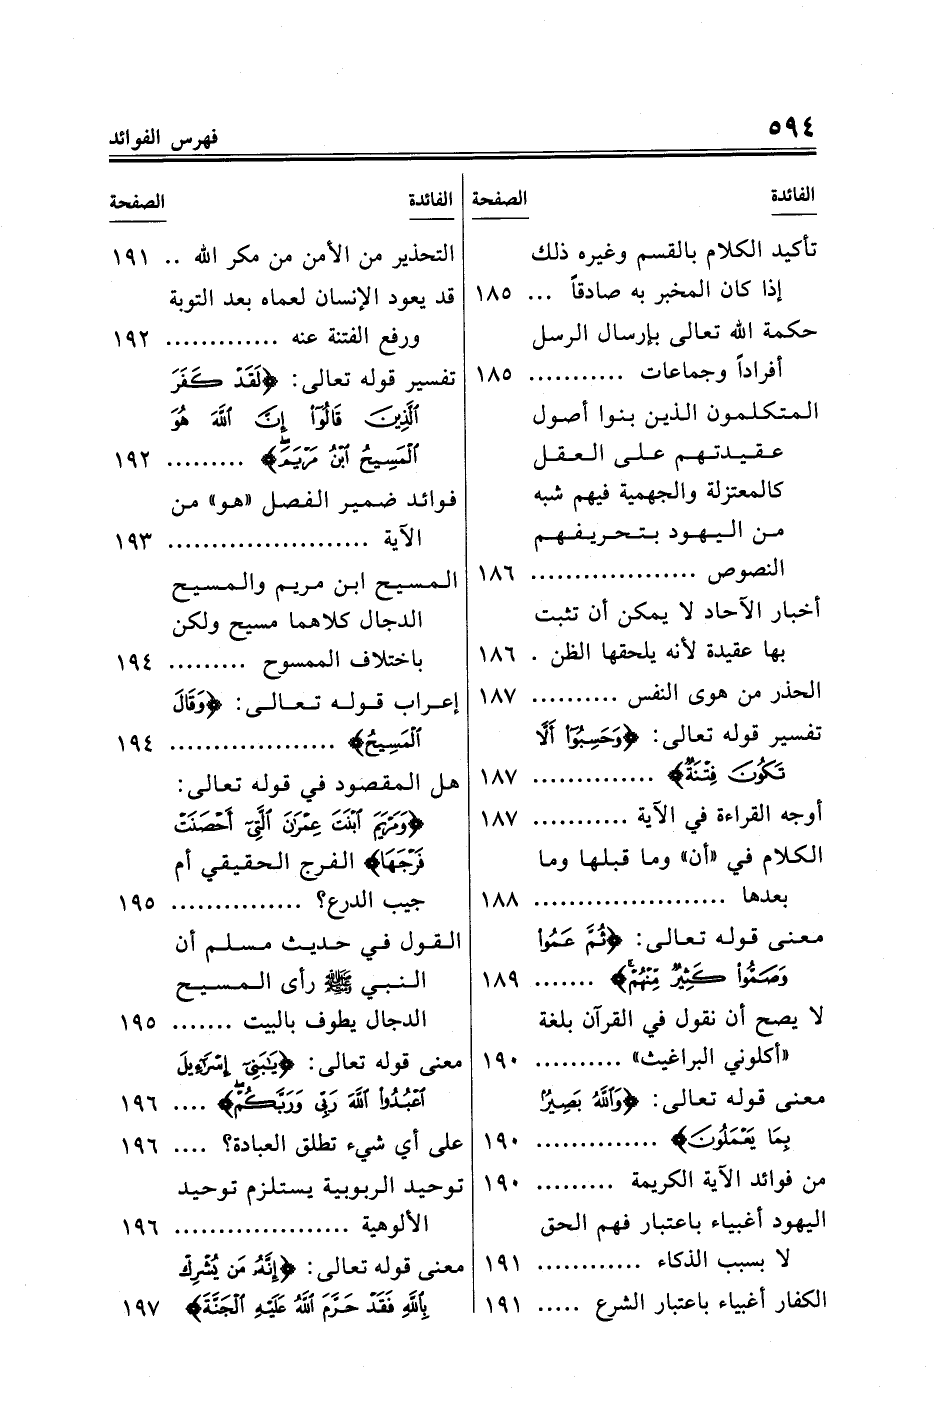 ٥٩٤
فهرس الفوائد
الفائدة الصفحة
تأكيد الكلام بالقسم وغيره ذلك
إذا كان المخبر به صادقاً ... ١٨٥
حكمة الله تعالى بإرسال الرسل
أفراداً وجماعات ........... ١٨٥
المتكلمون الذين بنوا أصول
عقيدتهم على العقل
كالمعتزلة والجهمية فيهم شبه
من اليهود بتحريفهم
النصوص ................... ١٨٦
أخبار الآحاد لا يمكن أن تثبت
بها عقيدة لأنه يلحقها الظن . ١٨٦
الحذر من هوى النفس .......... ١٨٧
تفسير قوله تعالى: ﴿وَحَسِبُوٓا۟ أَلَّا
تَكُونَ فِتْنَةٌ﴾ .............. ١٨٧
أوجه القراءة في الآية ........... ١٨٧
الكلام في «أن» وما قبلها وما
بعدها ...................... ١٨٨
معنى قوله تعالى: ﴿ثُمَّ عَمُوا۟
وَصَمُّوا۟ كَثِيرٌ مِّنْهُمْ﴾ ....... ١٨٩
لا يصح أن نقول في القرآن بلغة
«أكلوني البراغيث» .......... ١٩٠
معنى قوله تعالى: ﴿وَٱللَّهُ بَصِيرٌۢ
بِمَا يَعْمَلُونَ﴾ .............. ١٩٠
من فوائد الآية الكريمة ......... ١٩٠
اليهود أغبياء باعتبار فهم الحق
لا بسبب الذكاء ............ ١٩١
الكفار أغبياء باعتبار الشرع ..... ١٩١
الفائدة الصفحة
التحذير من الأمن من مكر الله .. ١٩١
قد يعود الإنسان لعماه بعد التوبة
ورفع الفتنة عنه ............. ١٩٢
تفسير قوله تعالى: ﴿لَقَدْ كَفَرَ
ٱلَّذِينَ قَالُوٓا۟ إِنَّ ٱللَّهَ هُوَ
ٱلْمَسِيحُ ٱبْنُ مَرْيَمَ﴾ ......... ١٩٢
فوائد ضمير الفصل «هو» من
الآية ....................... ١٩٣
المسيح ابن مريم والمسيح
الدجال كلاهما مسيح ولكن
باختلاف الممسوح ......... ١٩٤
إعراب قوله تعالى: ﴿وَقَالَ
ٱلْمَسِيحُ﴾ ................... ١٩٤
هل المقصود في قوله تعالى:
﴿وَمَرْيَمَ ٱبْنَتَ عِمْرَٰنَ ٱلَّتِىٓ أَحْصَنَتْ
فَرْجَهَا﴾ الفرج الحقيقي أم
جيب الدرع؟ ............... ١٩٥
القول في حديث مسلم أن
النبي ﷺ رأى المسيح
الدجال يطوف بالبيت ....... ١٩٥
معنى قوله تعالى: ﴿يَٰبَنِىٓ إِسْرَٰٓءِيلَ
ٱعْبُدُوا۟ ٱللَّهَ رَبِّى وَرَبَّكُمْ﴾ .... ١٩٦
على أي شيء تطلق العبادة؟ .... ١٩٦
توحيد الربوبية يستلزم توحيد
الألوهية .................... ١٩٦
معنى قوله تعالى: ﴿إِنَّهُۥ مَن يُشْرِكْ
بِٱللَّهِ فَقَدْ حَرَّمَ ٱللَّهُ عَلَيْهِ ٱلْجَنَّةَ﴾ ١٩٧